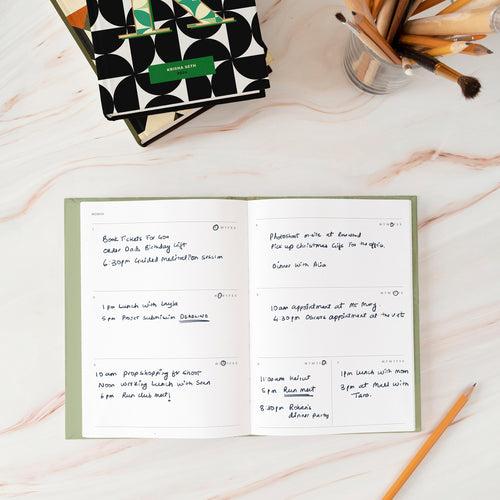 KRISHA SETH
MONTH
Book Tickets for Goa
Order Dads Birthday Gift
6:30pm Guided Meditation session
1pm Lunch with Layla
5pm Project Submission DEADLINE
10am prop shopping for shoot
Noon Working Lunch with Sean
6pm Run club meet!
Photoshoot on-site at
Pick up Christmas Gifts for the office.
Dinner with Alia
10am appointment at Mt Mary.
4:30pm Oscars appointment at the vet
11:00am Haircut
5pm Run meet
8:30pm Rohan's
dinner party
1pm Lunch with mom
3pm at Mall with
Tara.